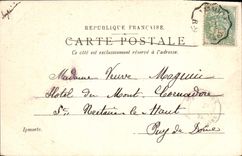 RÉPUBLIQUE FRANÇAISE
CARTE POSTALE
Ce côté est exclusivement réservé à l'adresse.
Madame Veuve Magnin
Hotel du Mont Cornadore
St Nectaire le Haut
Puy de Dôme